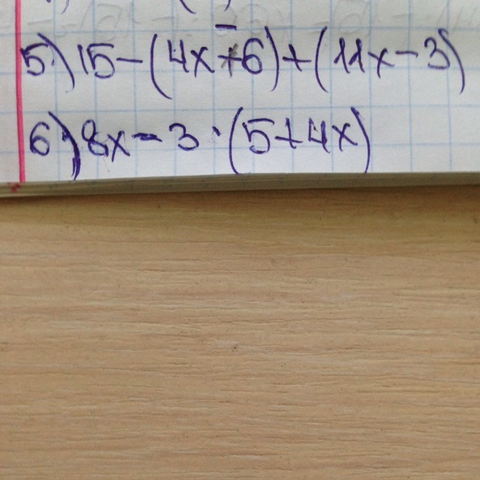 5) 15-(4x+6)+(11x-3)
6) 8x-3·(5+4x)